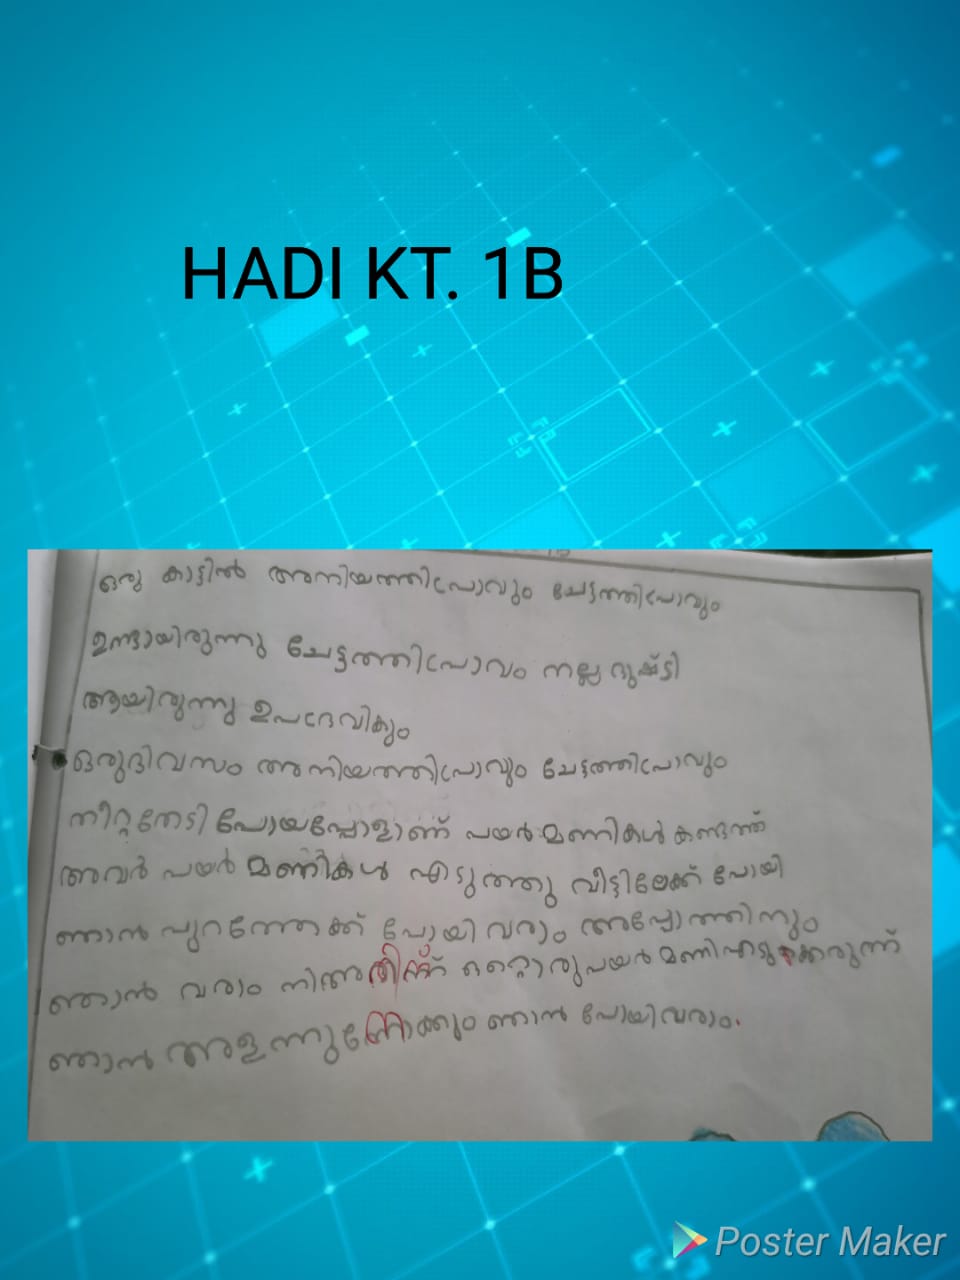 HADI KT. 1B
ഒരു കാട്ടിൽ അനിയത്തിപ്രാവും ചേട്ടത്തിപ്രാവും
ഉണ്ടായിരുന്നു ചേട്ടത്തിപ്രാവം നല്ല ദുഷ്ട്ടി
ആയിരുന്നു ഉപദ്രേവികും
ഒരുദിവസം അനിയത്തിപ്രാവും ചേട്ടത്തിപ്രാവും
തീറ്റതേടി പോയപ്പോളാണ് പയർമണികൾ കണ്ടത്ത്
അവർ പയർ മണികൾ എടുത്തു വീട്ടിലേക്ക് പോയി
ഞാൻ പുറത്തേക്ക് പോയിവരാം അപ്പോത്തിനും
ഞാൻ വരാം ഒറ്റൊരുപയർമണിഎടുക്കരുന്ന്
ഞാൻ അളന്നുണോക്കും ഞാൻ പോയിവരാം.
Poster Maker